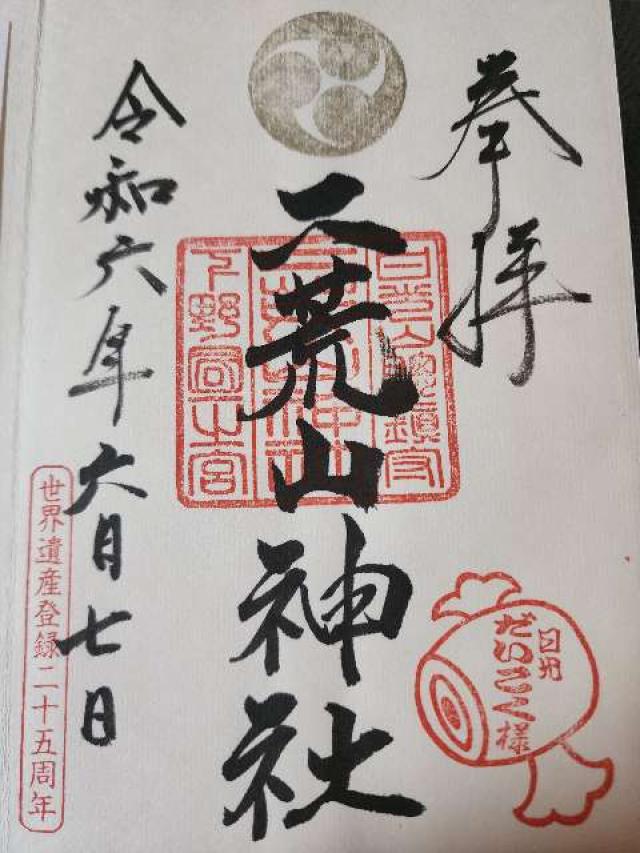 奉拝
日光
だいこく様
日光山總鎮守
二荒山神社
令和六年六月七日
世界遺産登録二十五周年